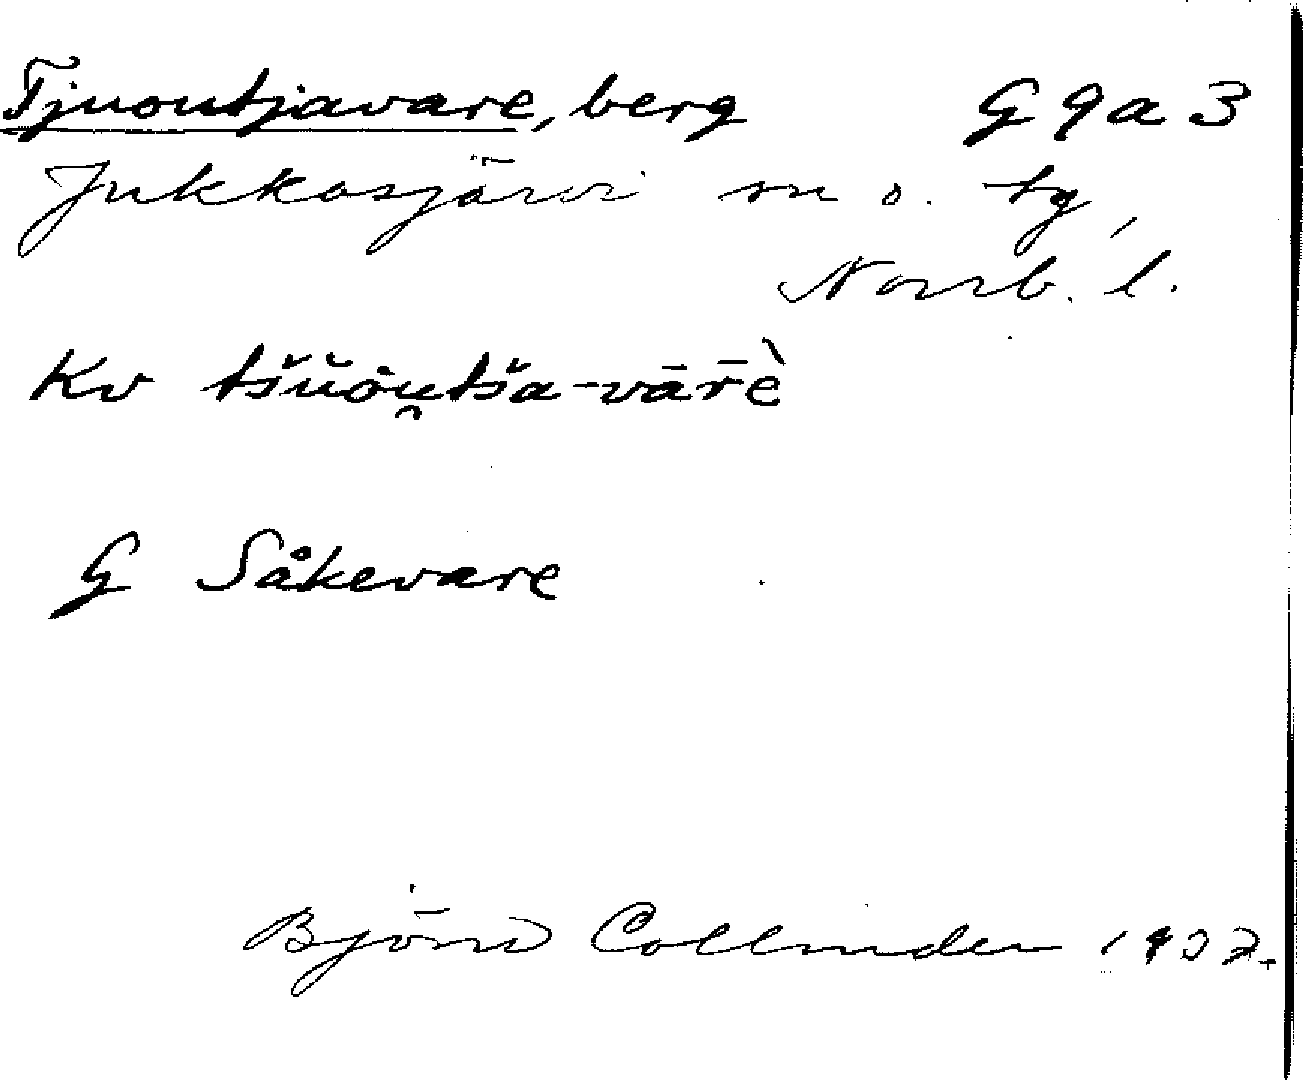 Tjuoutjavare, berg G 9 a 3
Jukkasjärvi sn o. tg,
Norrb. l.
Kv tšŭȯu̯tša-vār̄è
G Såkevare
Björn Collinder